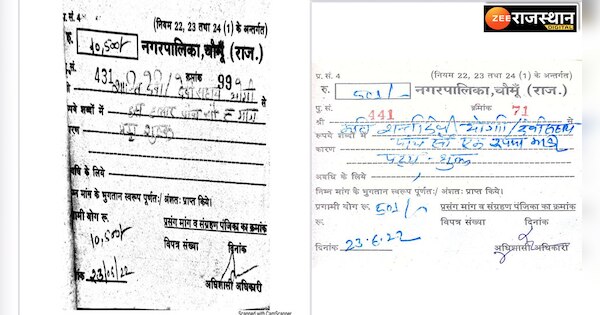 प्र. सं. 4
(नियम 22, 23 तथा 24 (1) के अन्तर्गत)
रु. 10,500/
नगरपालिका, चौमूँ (राज.)
431
क्रमांक 99
शब्दों में
कारण
अवधि के लिये
निम्न मांग के भुगतान स्वरूप पूर्णतः/ अंशतः प्राप्त किये।
प्रगामी योग रु.
प्रसंग मांग व संग्रहण पंजिका का क्रमांक
10,500/
विपत्र संख्या
दिनांक
23/06/22
अधिशासी अधिकारी
Scanned with CamScanner
ZEE राजस्थान
DIGITAL
प्र. सं. 4
(नियम 22, 23 तथा 24 (1) के अन्तर्गत)
रु. 501/-
नगरपालिका, चौमूँ (राज.)
पु. सं. 441
क्रमांक 71
श्री
से
रुपये शब्दों में पांच सौ एक रुपया मात्र
कारण
पट्टा शुल्क
अवधि के लिये
निम्न मांग के भुगतान स्वरूप पूर्णतः/ अंशतः प्राप्त किये।
प्रगामी योग रु. 501/-
प्रसंग मांग व संग्रहण पंजिका का क्रमांक
रु.
विपत्र संख्या
दिनांक
दिनांक 23.6.22
अधिशासी अधिकारी